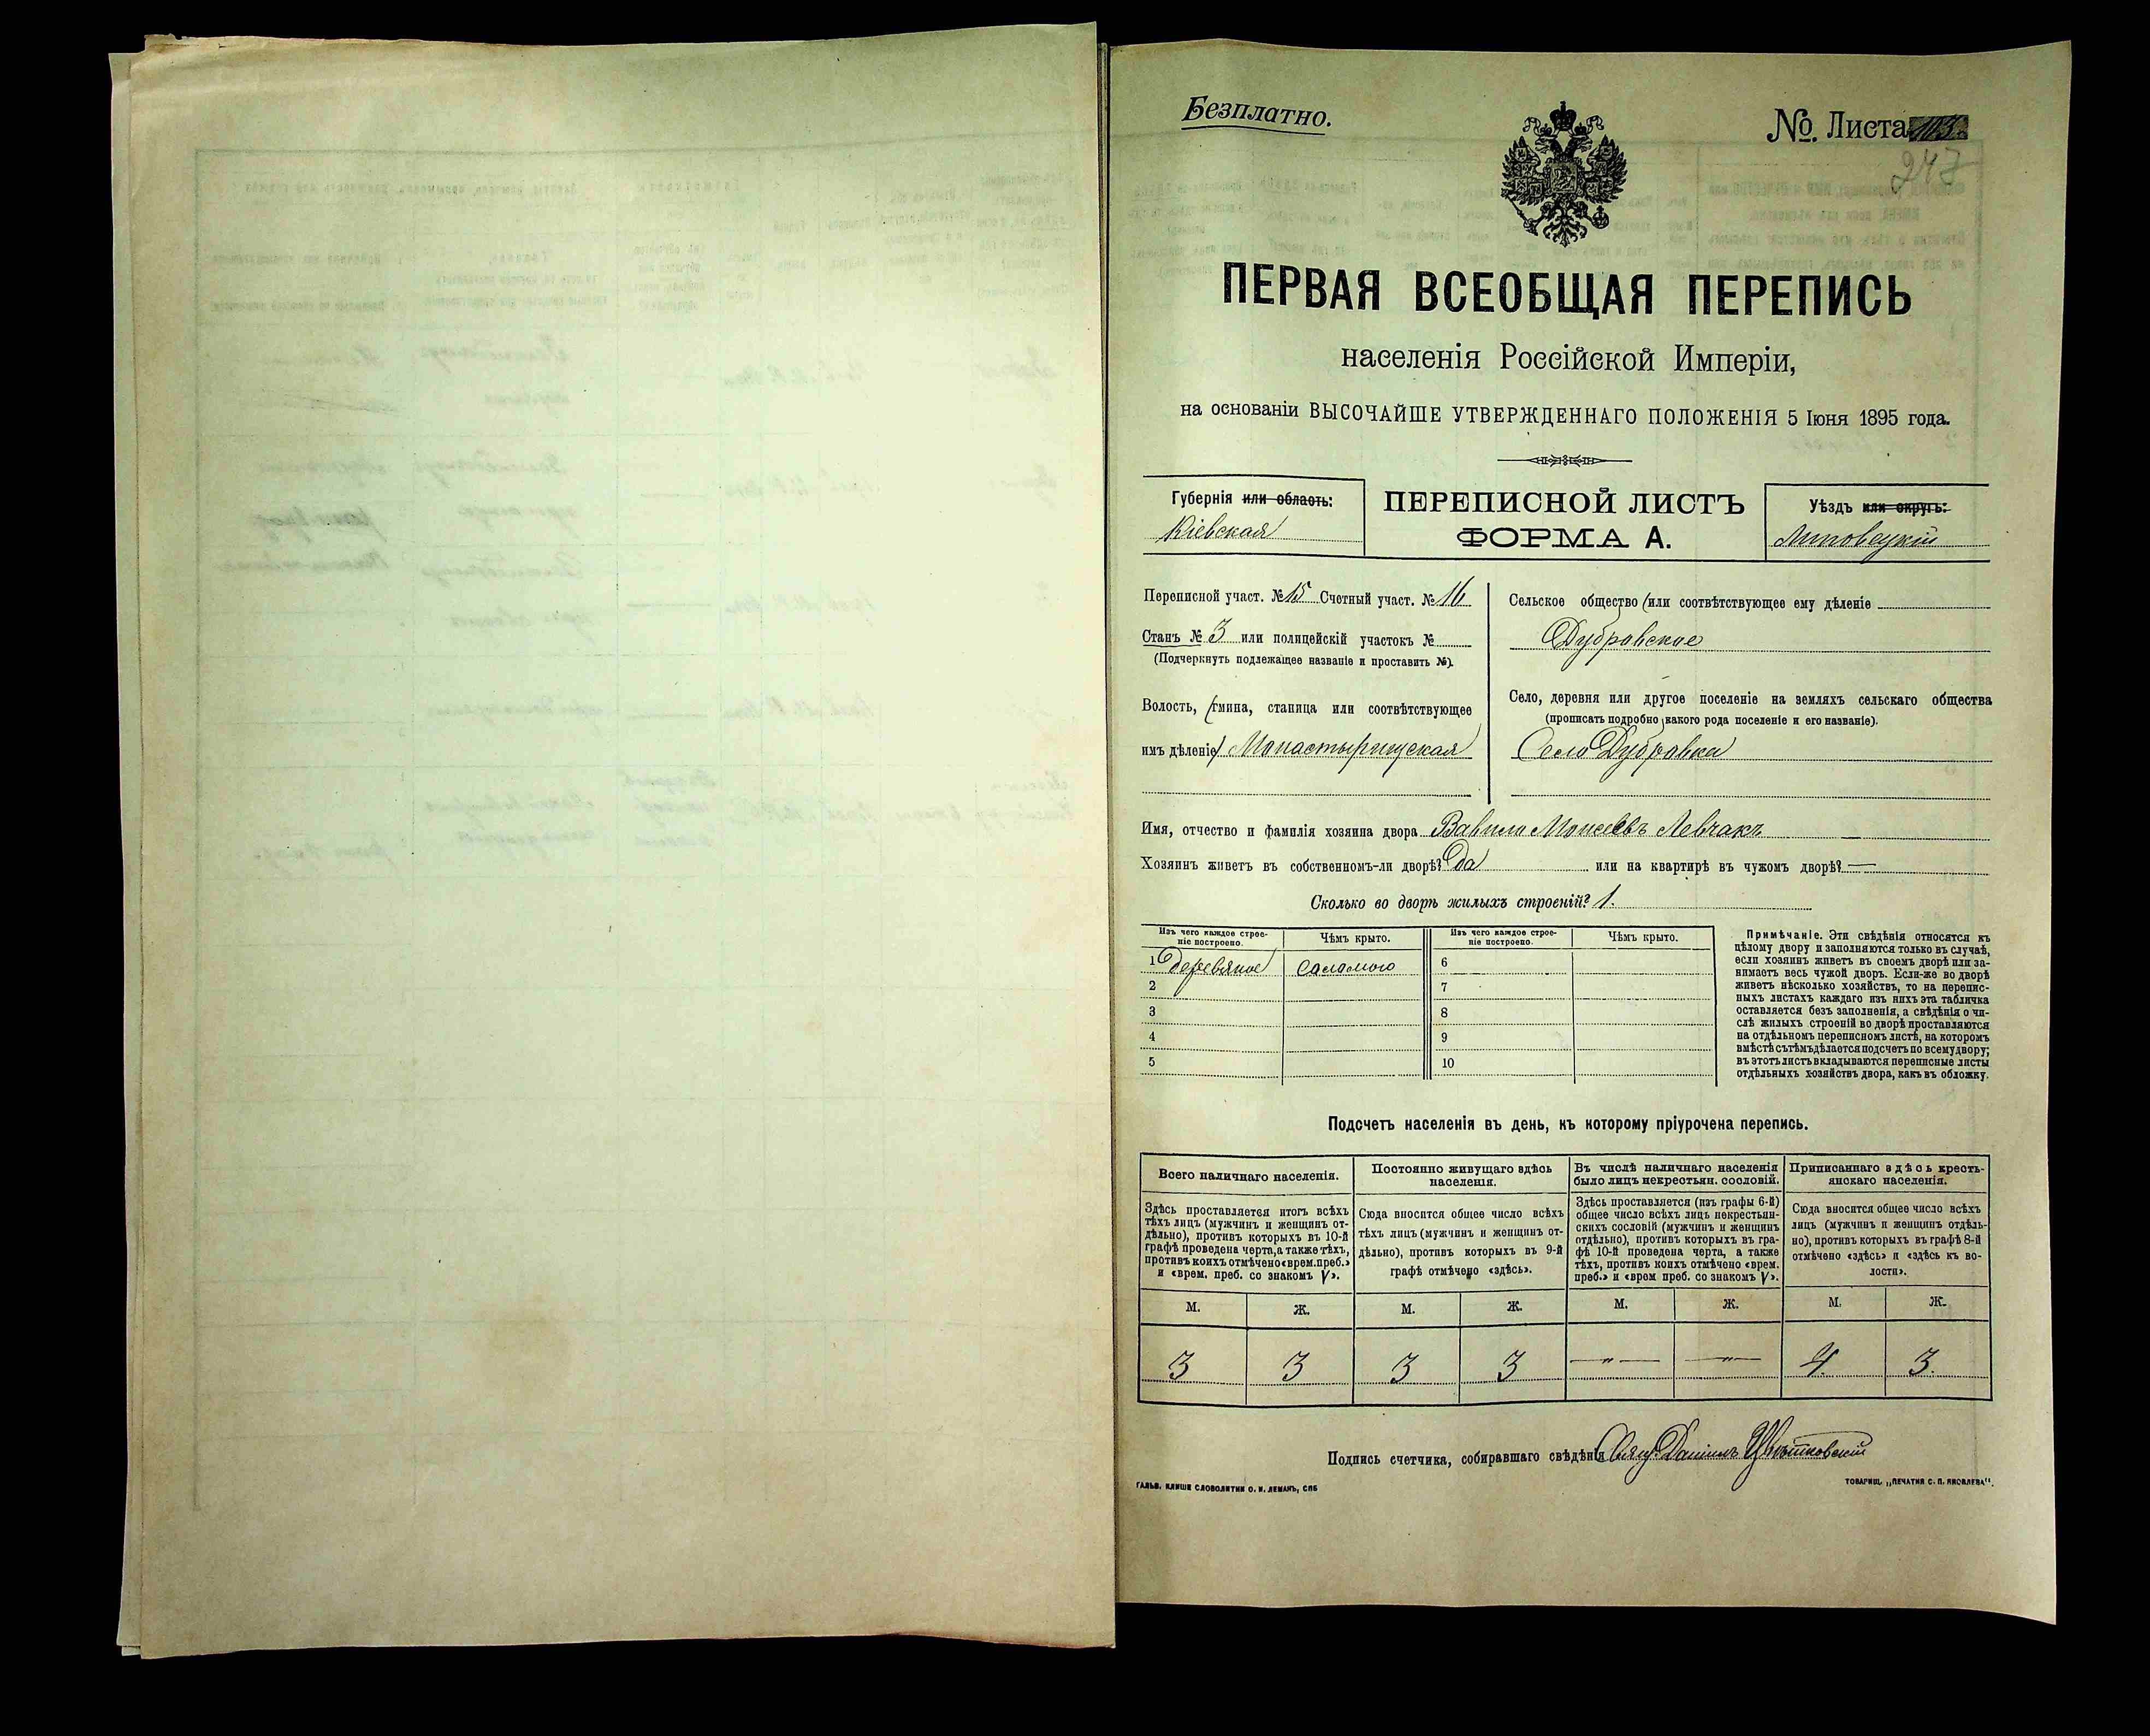 Безплатно.
№. Листа 103.
247
ПЕРВАЯ ВСЕОБЩАЯ ПЕРЕПИСЬ
населенія Россійской Имперіи,
на основаніи ВЫСОЧАЙШЕ УТВЕРЖДЕННАГО ПОЛОЖЕНІЯ 5 Іюня 1895 года.
Губернія или область:
Кіевская
ПЕРЕПИСНОЙ ЛИСТЪ
ФОРМА А.
Уѣздъ или округъ:
Липовецкій
Переписной участ. № 15 Счетный участ. № 16
Станъ № 3 или полицейскій участокъ №
(Подчеркнуть подлежащее названіе и проставить №).
Волость, (гмина, станица или соотвѣтствующее
имъ дѣленіе) Монастырищская
Сельское общество (или соотвѣтствующее ему дѣленіе
Дубровское
Село, деревня или другое поселеніе на земляхъ сельскаго общества
(прописать подробно какого рода поселеніе и его названіе).
Село Дубровка
Имя, отчество и фамилія хозяина двора Вавило Моисеевъ Левчакъ
Хозяинъ живетъ въ собственномъ-ли дворѣ? да или на квартирѣ въ чужомъ дворѣ? —
Сколько во дворѣ жилыхъ строеній? 1.
Изъ чего каждое строе-
ніе построено.
Чѣмъ крыто.
Изъ чего каждое строе-
ніе построено.
Чѣмъ крыто.
1 Деревяное саламою 6
2 7
3 8
4 9
5 10
Примѣчаніе. Эти свѣдѣнія относятся къ
цѣлому двору и заполняются только въ случаѣ,
если хозяинъ живетъ въ своемъ дворѣ или за-
нимаетъ весь чужой дворъ. Если-же во дворѣ
живетъ нѣсколько хозяйствъ, то на перепис-
ныхъ листахъ каждаго изъ нихъ эта табличка
оставляется безъ заполненія, а свѣдѣнія о чи-
слѣ жилыхъ строеній во дворѣ проставляются
на отдѣльномъ переписномъ листѣ, на которомъ
вмѣстѣ съ тѣмъ дѣлается подсчетъ по всему двору;
въ этотъ листъ вкладываются переписные листы
отдѣльныхъ хозяйствъ двора, какъ въ обложку.
Подсчетъ населенія въ день, къ которому пріурочена перепись.
Всего наличнаго населенія.
Здѣсь проставляется итогъ всѣхъ
тѣхъ лицъ (мужчинъ и женщинъ от-
дѣльно), противъ которыхъ въ 10-й
графѣ проведена черта, а также тѣхъ,
противъ коихъ отмѣчено «врем. преб.»
и «врем. преб. со знакомъ V».
Постоянно живущаго здѣсь
населенія.
Сюда вносится общее число всѣхъ
тѣхъ лицъ (мужчинъ и женщинъ от-
дѣльно), противъ которыхъ въ 9-й
графѣ отмѣчено «здѣсь».
Въ числѣ наличнаго населенія
было лицъ некрестьян. сословій.
Здѣсь проставляется (изъ графы 6-й)
общее число всѣхъ лицъ некрестьян-
скихъ сословій (мужчинъ и женщинъ
отдѣльно), противъ которыхъ въ гра-
фѣ 10-й проведена черта, а также
тѣхъ, противъ коихъ отмѣчено «врем.
преб.» и «врем преб. со знакомъ V».
Приписаннаго здѣсь кресть-
янскаго населенія.
Сюда вносится общее число всѣхъ
лицъ (мужчинъ и женщинъ отдѣль-
но), противъ которыхъ въ графѣ 8-й
отмѣчено «здѣсь» и «здѣсь къ во-
лости».
М. Ж. М. Ж. М. Ж. М. Ж.
3 3 3 3 — „ — — „ — 4. 3.
Подпись счетчика, собиравшаго свѣдѣнія Свящ. Даніилъ Цвѣтковскій
ГАЛЬВ. КЛИШЕ СЛОВОЛИТНИ О. И. ЛЕМАНЪ, СПБ
ТОВАРИЩ. „ПЕЧАТНЯ С. П. ЯКОВЛЕВА".